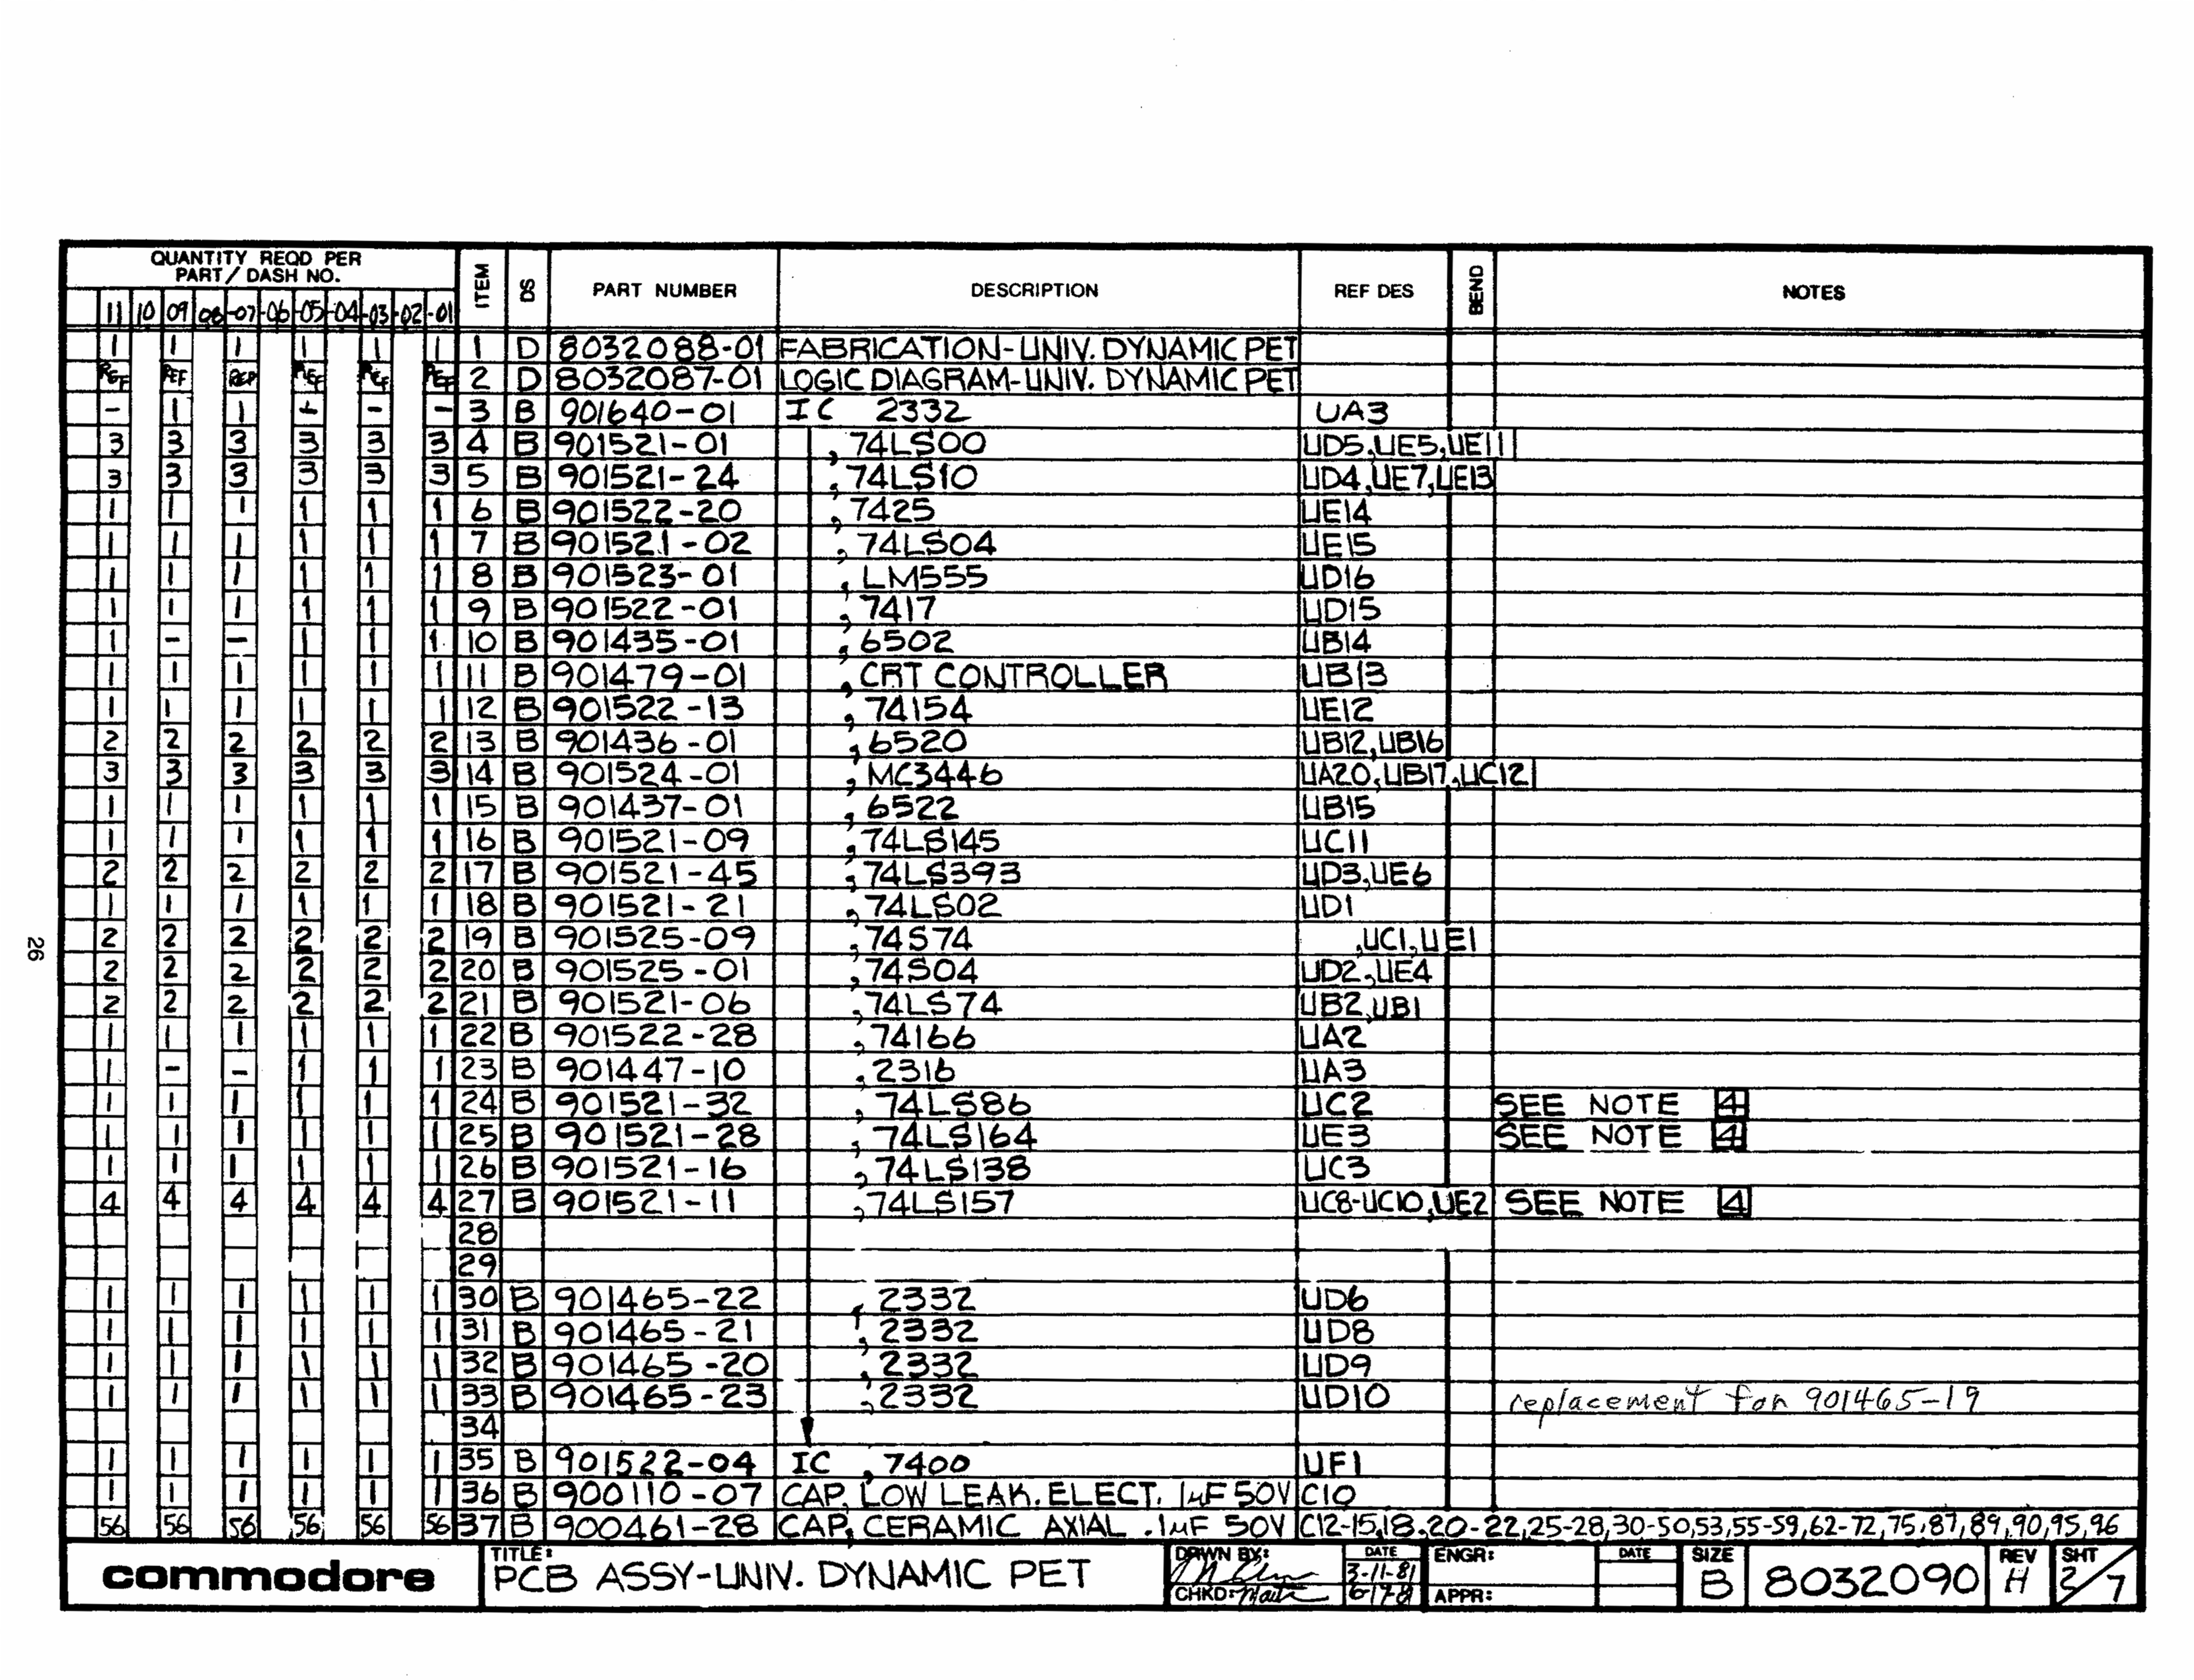 QUANTITY REQD PER
PART / DASH NO.
ITEM DS PART NUMBER DESCRIPTION REF DES BEND NOTES
11 10 09 08 -07 -06 -05 -04 -03 -02 -01
1 1 1 1 1 1 1 D 8032088-01 FABRICATION-UNIV. DYNAMIC PET
REF REF REF REF REF REF 2 D 8032087-01 LOGIC DIAGRAM-UNIV. DYNAMIC PET
- 1 1 - - - 3 B 901640-01 IC 2332 UA3
3 3 3 3 3 3 4 B 901521-01 , 74LS00 UD5,UE5,UE11
3 3 3 3 3 3 5 B 901521-24 , 74LS10 UD4,UE7,UE13
1 1 1 1 1 1 6 B 901522-20 , 7425 UE14
1 1 1 1 1 1 7 B 901521-02 , 74LS04 UE15
1 1 1 1 1 1 8 B 901523-01 , LM555 UD16
1 1 1 1 1 1 9 B 901522-01 , 7417 UD15
1 - - 1 1 1 10 B 901435-01 , 6502 UB14
1 1 1 1 1 1 11 B 901479-01 , CRT CONTROLLER UB13
1 1 1 1 1 1 12 B 901522-13 , 74154 UE12
2 2 2 2 2 2 13 B 901436-01 , 6520 UB12,UB16
3 3 3 3 3 3 14 B 901524-01 , MC3446 UA20,UB17,UC12
1 1 1 1 1 1 15 B 901437-01 , 6522 UB15
1 1 1 1 1 1 16 B 901521-09 , 74LS145 UC11
2 2 2 2 2 2 17 B 901521-45 , 74LS393 UD3,UE6
1 1 1 1 1 1 18 B 901521-21 , 74LS02 UD1
2 2 2 2 2 2 19 B 901525-09 , 74S74 ,UC1,UE1
2 2 2 2 2 2 20 B 901525-01 , 74S04 UD2,UE4
2 2 2 2 2 2 21 B 901521-06 , 74LS74 UB2,UB1
1 1 1 1 1 1 22 B 901522-28 , 74166 UA2
1 - - 1 1 1 23 B 901447-10 , 2316 UA3
1 1 1 1 1 1 24 B 901521-32 , 74LS86 UC2 SEE NOTE 4
1 1 1 1 1 1 25 B 901521-28 , 74LS164 UE3 SEE NOTE 4
1 1 1 1 1 1 26 B 901521-16 , 74LS138 UC3
4 4 4 4 4 4 27 B 901521-11 , 74LS157 UC8-UC10,UE2 SEE NOTE 4
28
29
1 1 1 1 1 1 30 B 901465-22 , 2332 UD6
1 1 1 1 1 1 31 B 901465-21 , 2332 UD8
1 1 1 1 1 1 32 B 901465-20 , 2332 UD9
1 1 1 1 1 1 33 B 901465-23 , 2332 UD10 replacement for 901465-19
34
1 1 1 1 1 1 35 B 901522-04 IC , 7400 UF1
1 1 1 1 1 1 36 B 900110-07 CAP, LOW LEAK. ELECT. 1µF 50V C10
56 56 56 56 56 56 37 B 900461-28 CAP, CERAMIC AXIAL .1µF 50V C12-15,18,20-22,25-28,30-50,53,55-59,62-72,75,87,89,90,95,96
commodore
TITLE:
PCB ASSY-UNIV. DYNAMIC PET
DRWN BY: DATE 3-11-81
CHKD:
ENGR: DATE
APPR:
SIZE B
8032090
REV H
SHT 2/7
26